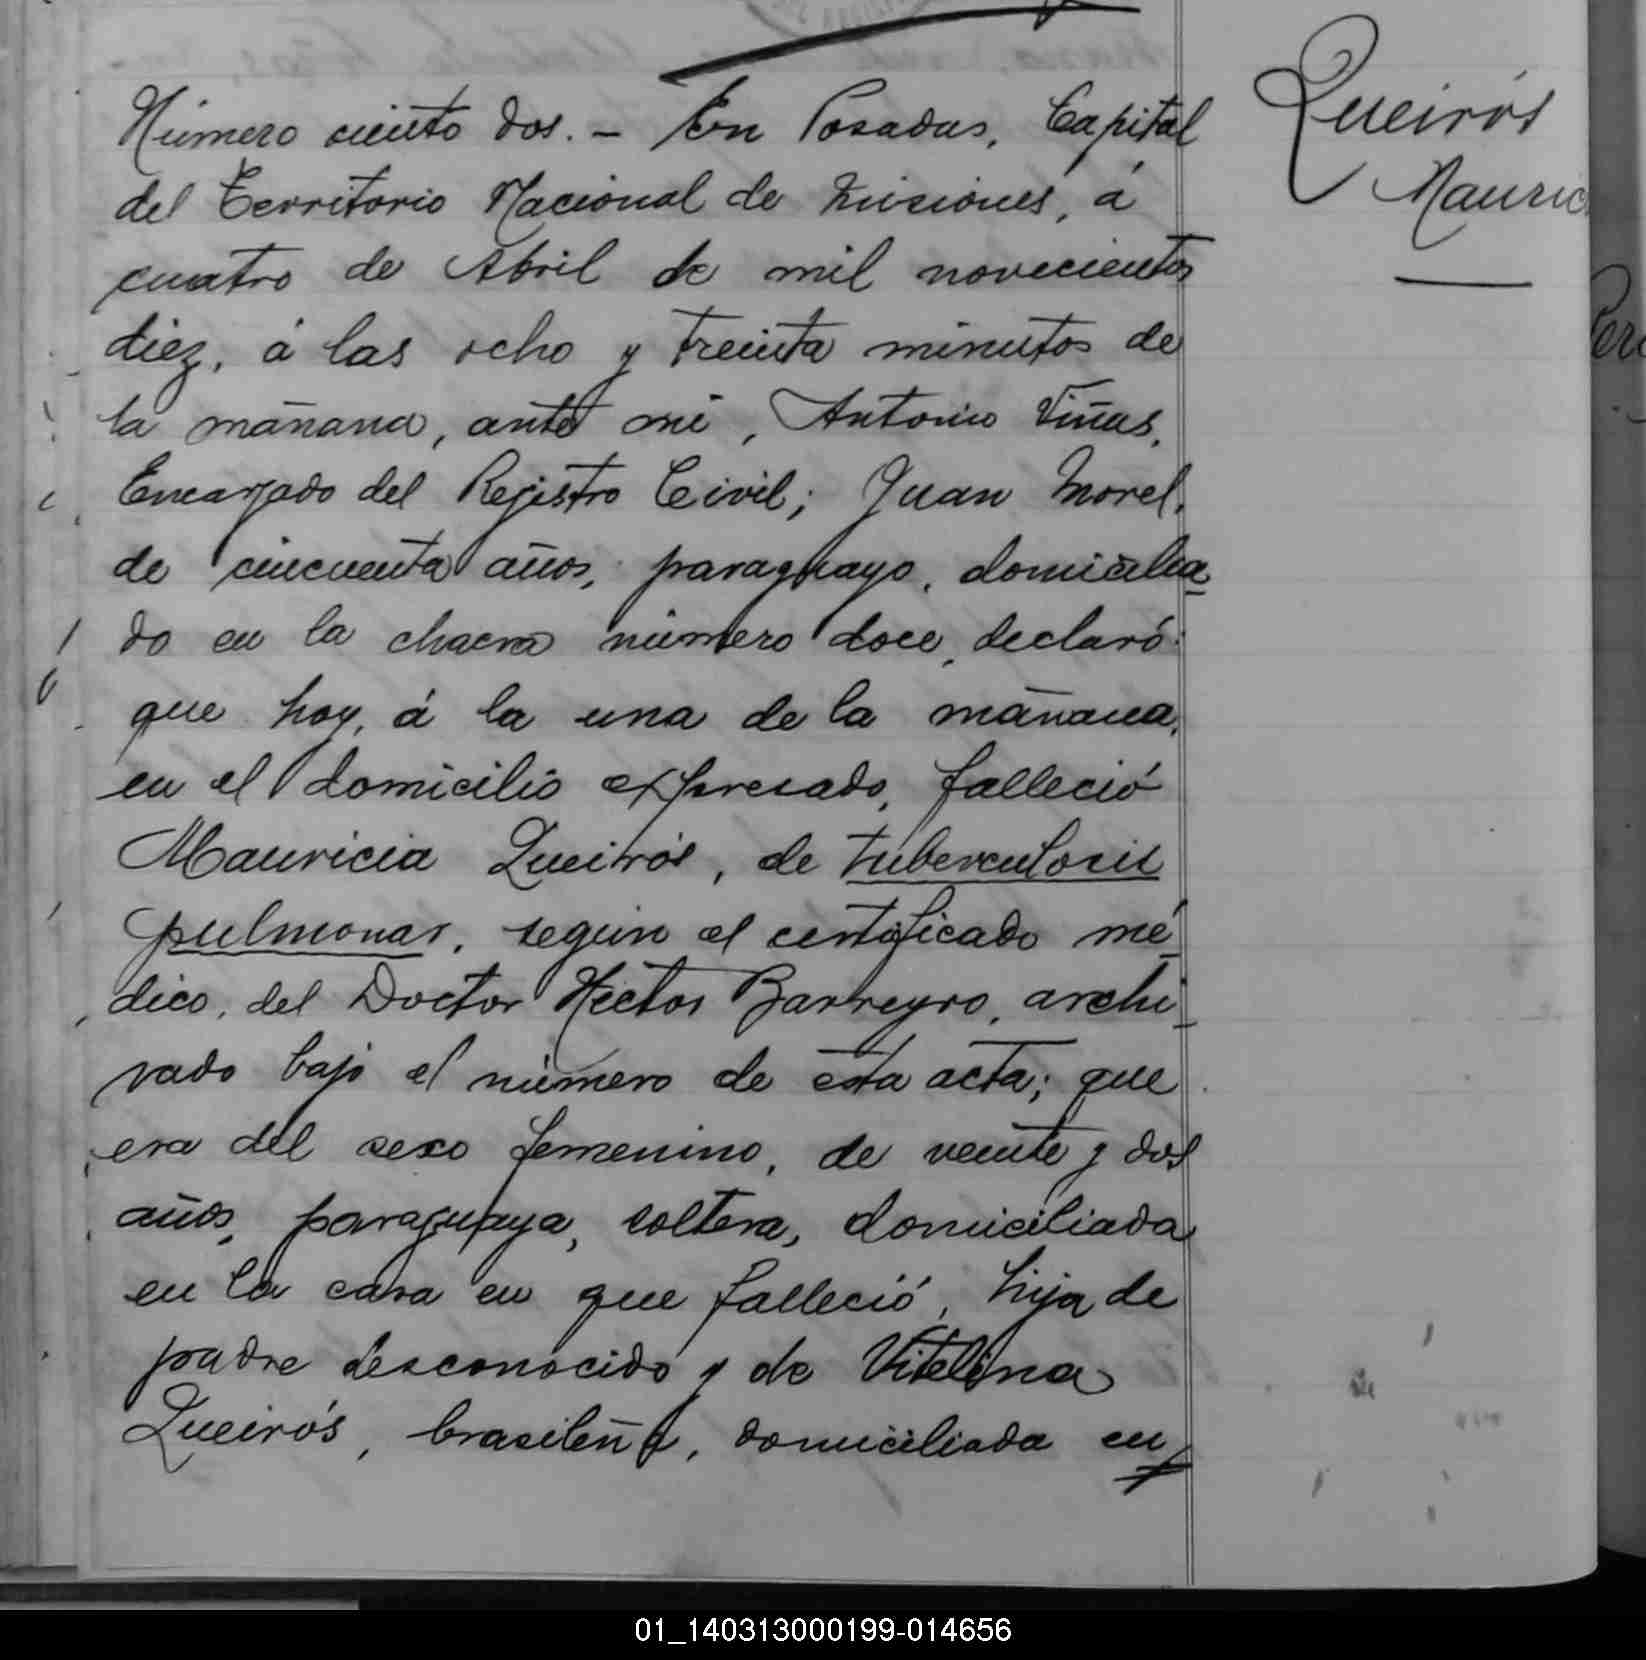 Número ciento dos. - En Posadas, Capital
del Territorio Nacional de Misiones, á
cuatro de Abril de mil novecientos
diez, á las ocho y treinta minutos de
la mañana, ante mi, Antonio Viñas,
Encargado del Rejistro Civil; Juan Morel,
de cincuenta años, paraguayo, domicilia
do en la chacra número doce, declaró:
que hoy, á la una de la mañana,
en el domicilio expresado, falleció
Mauricia Queirós, de tuberculosis
pulmonar, según el certificado mé
dico, del Doctor Héctor Barreyro, archi
vado bajo el número de esta acta; que
era del sexo femenino, de veinte y dos
años, paraguaya, soltera, domiciliada
en la casa en que falleció, hija de
padre desconocido y de Vitelina
Queirós, brasileña, domiciliada en
Queirós
Mauric
01_140313000199-014656